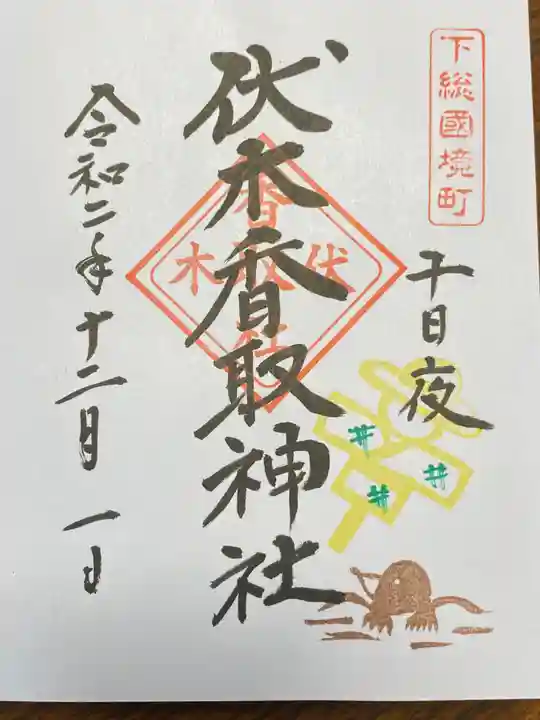 下総國境町
十日夜
伏木香取神社
香取社
伏木
令和二年十二月一日
井
井
井